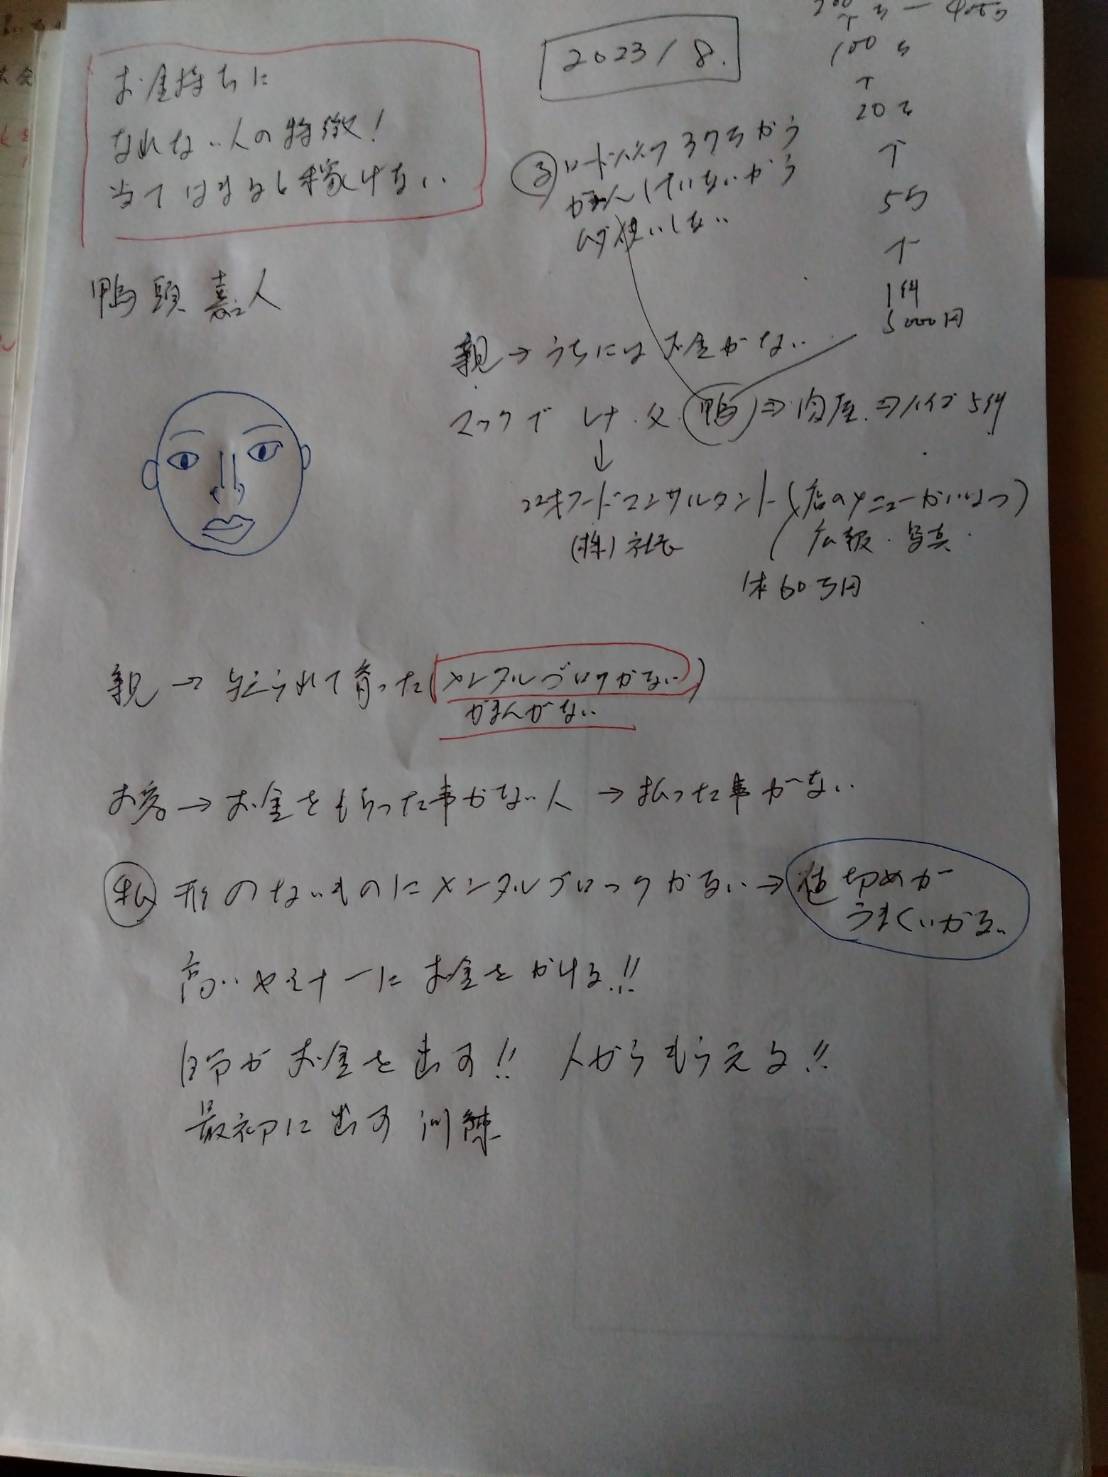 お金持ちに
なれない人の特徴!
当てはまると稼げない
2023/8.
100万
↑
20万
↑
5万
↑
1件
5000円
ロードバイク 37万かう
がまんしていないから
ムダ使いしない
鴨頭嘉人
親→うちにはお金がない
マックで 父 鴨 ⇒肉屋⇒バイブ5件
↓
フードコンサルタント(店のメニュー
(株)社長 広報・写真
1本60万円
親→与えられて育った(メンタルブロックがない)
がまんがない
お客→お金をもらった事がない人→払った事がない
私 形のないものにメンタルブロックがない→値切めが
うまくいかる。
高いセミナーにお金をかける!!
自分がお金を出す!! 人からもらえる!!
最初に出す訓練